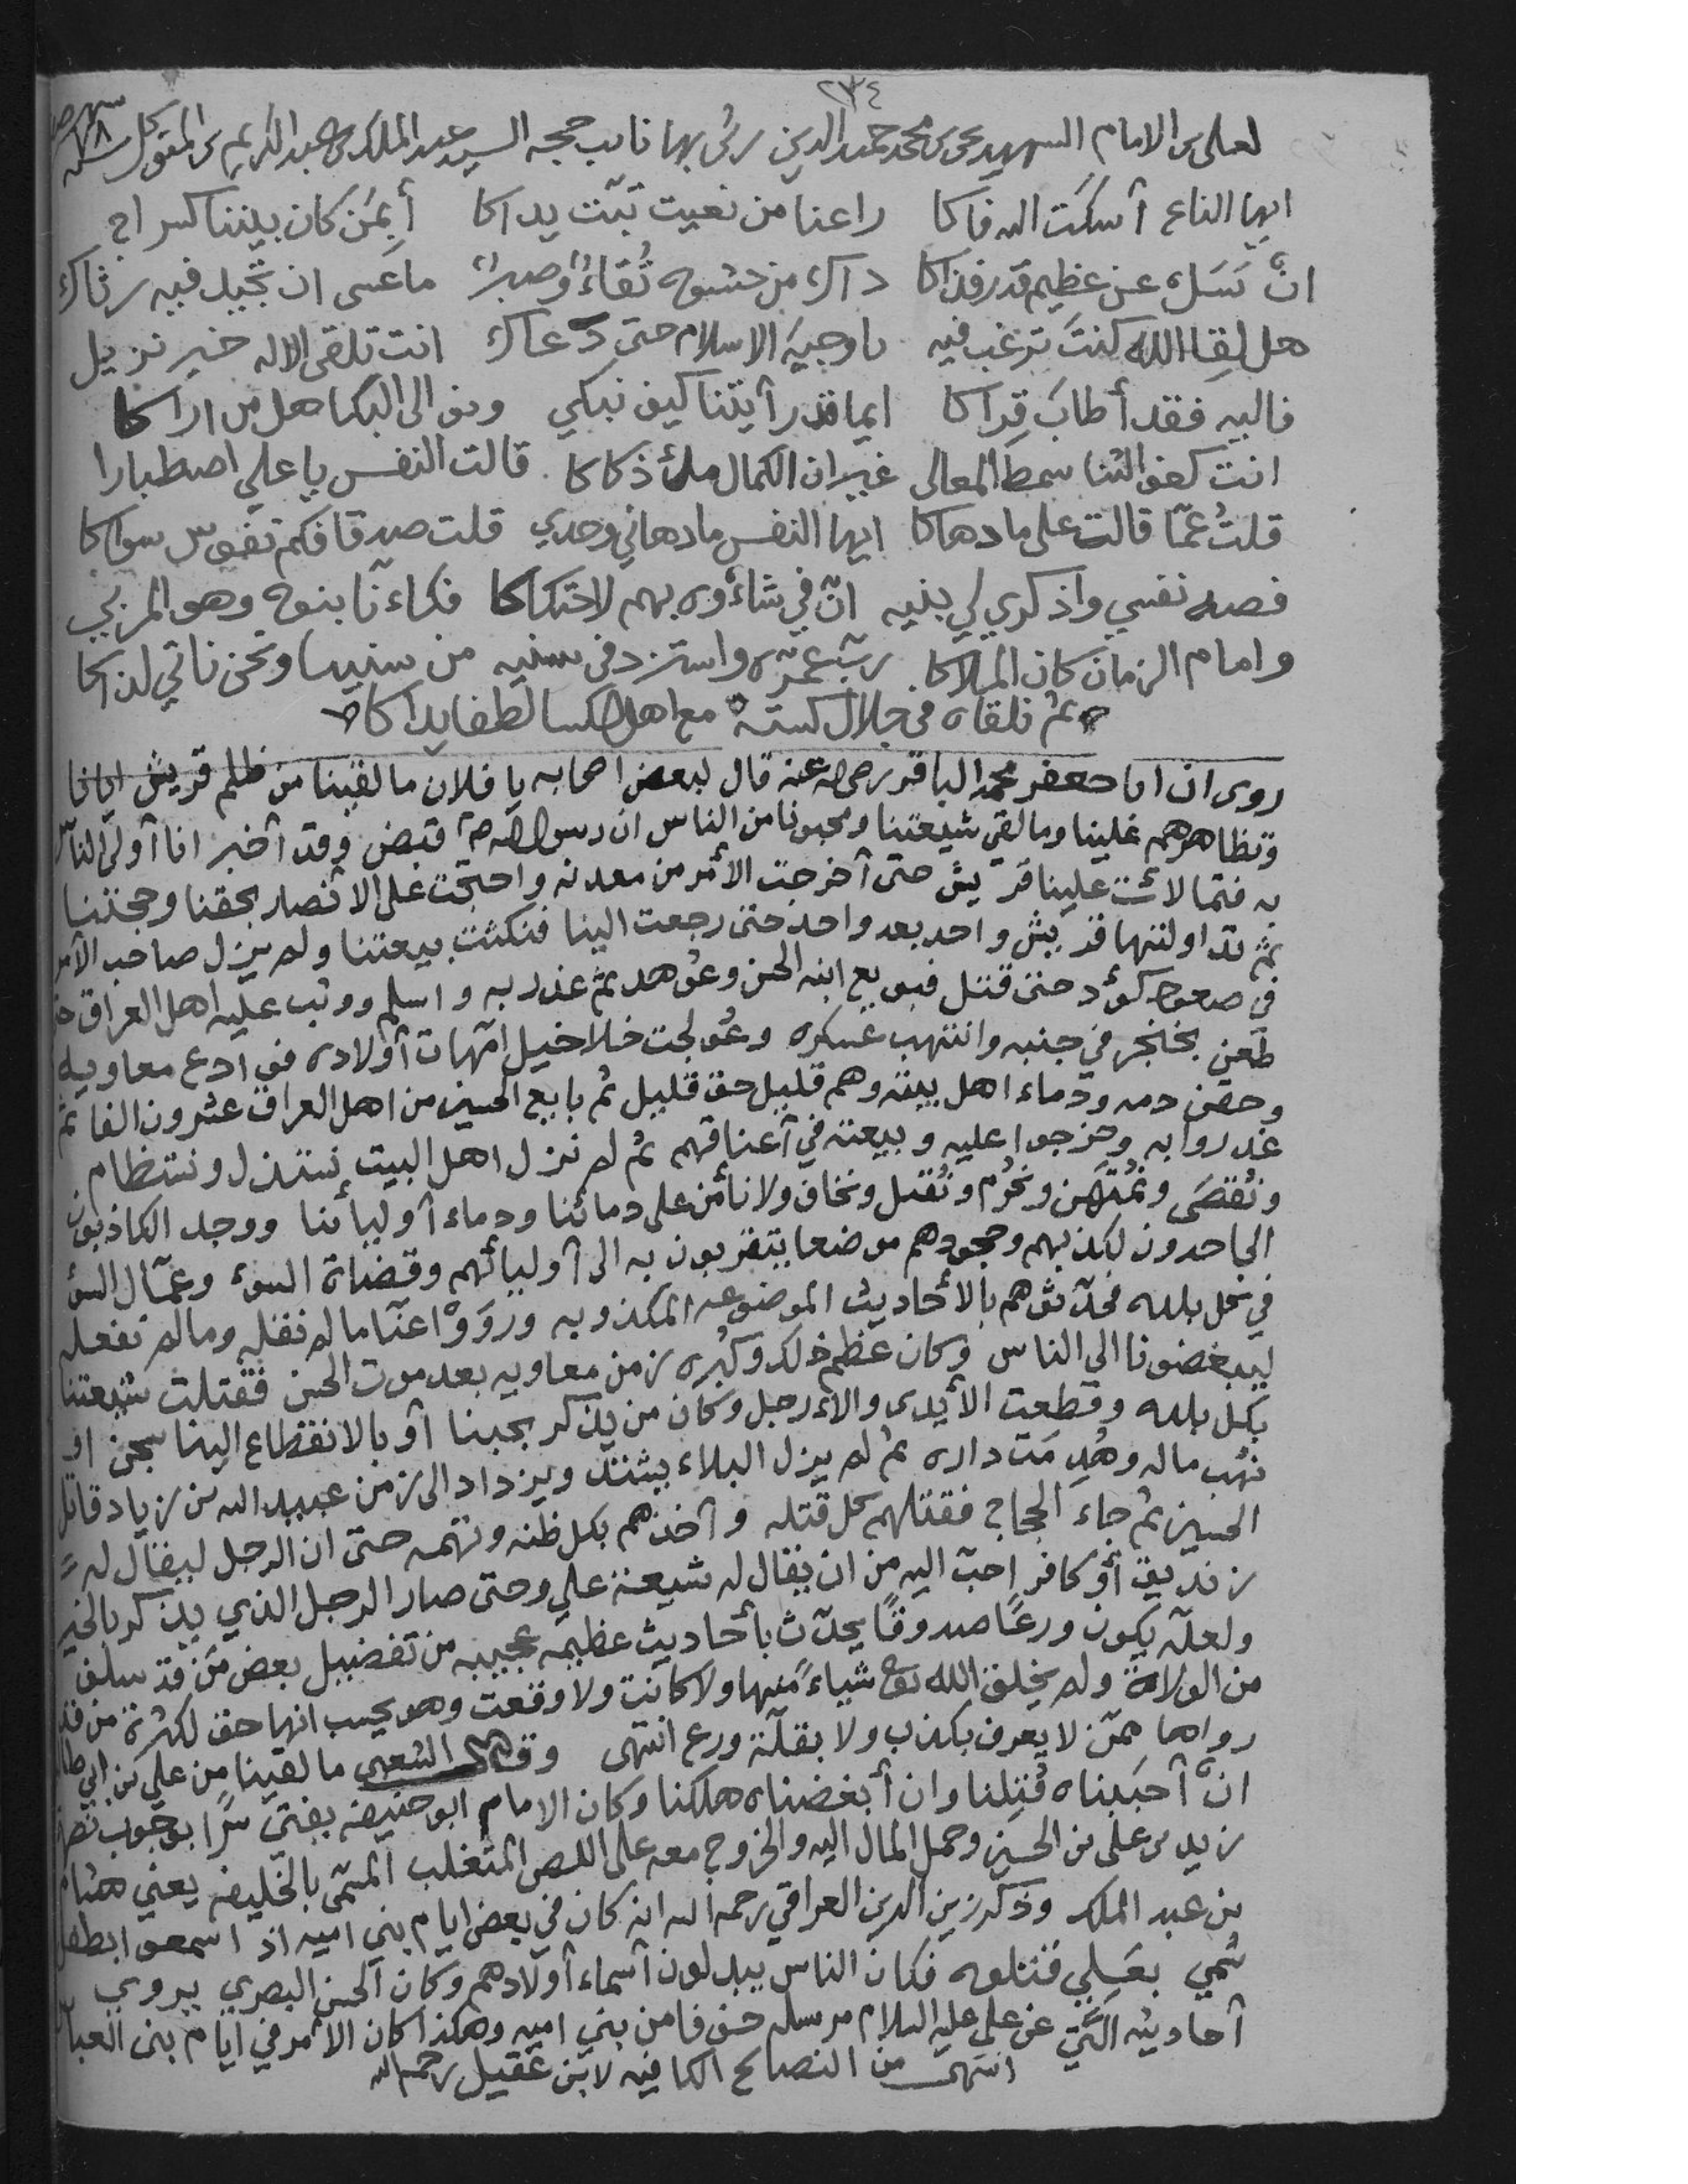 ٢٣٤
لعلي بن الامام الشهيد يحيى بن محمد حميد الدين رثى بها نايب حجه السيد عبد الملك بن عبد الكريم بن المتوكل
ايها الناع أسكت الله فاكا راعنا من نعيت تبّت يداكا أبمن كان بيننا كسراج
انّ تسل عن عظيم قدر فذاكا ذاك من حشوه تُقاءً وصبراً ما عسى ان تجيل فيه رثاك
هل لِقا الله كنتَ ترغب فيه يا وجيهَ الاسلام حتى دعاك انت تلقى الاله خير نزيل
فاليه فقد أطابَ قِراكا ايها قد رأيتنا كيف نبكي وبنو الى البكا هل من اراكا
انت كفو الثنا سمط المعالى غير ان الكمال ملئ ذكاكا قالت النفس يا علي اصطبارا
قلتُ عمّا قالت على ما دهاكا ايها النفس ما دهاني وحدي قلت صدقا فكم نفوس سواكا
فصه نفسي واذكري لي بنيه انّ في شاءوه بهم لاحتكاكا فكاءنّا بنوه وهو المربي
وامام الزمان كان الملاكا ربّ عمّره واستزد في سنيه من سنينا ونحن ناتي لذاكا
ثم نلقاه في جلال كسته مع اهل الكسا لطفا يداكا
روى ان ابا جعفر محمد الباقر رضي الله عنه قال لبعض اصحابه يا فلان ما لقينا من ظلم قريش ايانا
وتظاهرهم علينا وما لقي شيعتنا ومحبونا من الناس ان رسول الله صلى قبض وقد أخبر انا أولى الناس
به فتمالاءت علينا قريش حتى أخرجت الأمر من معدنه واحتجت على الانصار بحقنا وحجتنا
ثم تداولتها قريش واحد بعد واحد حتى رجعت الينا فنكثت بيعتنا ولم يزل صاحب الأمر
في صعود كؤد حتى قتل فبويع ابنه الحسن وعوهد ثم غدر به واسلم ووثب عليه اهل العراق حتى
طعن بخنجر في جنبه وانتهب عسكره وعولجت خلاخيل امهات أولاده فوادع معاويه
وحقن دمه ودماء اهل بيته وهم قليل حق قليل ثم بايع الحسين من اهل العراق عشرون الفا ثم
غدروا به وخرجوا عليه وبيعته في أعناقهم ثم لم نزل اهل البيت نستذل ونستظام
ونُقصَى ونُمتهَن ونُحرُم ونُقتل ونخاف ولا نأمن على دمائنا ودماء أوليائنا ووجد الكاذبون
الجاحدون لكذبهم وجحودهم موضعا يتقربون به الى أوليائهم وقضاة السوء وعمّال السؤ
في كل بلده فحدّثوهم بالأحاديث الموضوعه المكذوبه وروَوْا عنّا ما لم نقله وما لم نفعله
ليبغضونا الي الناس وكان عظم ذلك وكُبره زمن معاويه بعد موت الحسن فقتلت شيعتنا
بكل بلده وقطعت الأيدي والاءرجل وكان من يذكر بحبنا أو بالانقطاع الينا سجن او
نهب ماله وهُدِمَت داره ثم لم يزل البلاء يشتد ويزداد الى زمن عبيد الله بن زياد قاتل
الحسين ثم جاء الحجاج فقتلهم كل قتله وأخذهم بكل ظنه وتهمه حتى ان الرجل ليقال له
زنديق أوْ كافر احبّ اليه من ان يقال له شيعة علي وحتى صار الرجل الذي يذكر بالخير
ولعلّه يكون ورعًا صدوقًا يحدّث بأحاديث عظيمه عجيبه من تفضيل بعض مَن قد سلف
من الولاة ولم يخلق الله تع شياءً منها ولا كانت ولا وقعت وهو يحسب انها حق لكثرة من قد
رواها ممّن لا يعرف بكذب ولا بقلّة ورع انتهى وقال الشعبي ما لقينا من علي بن ابي طالب
انّ أحببناه قُتِلنا وان أبغضناه هلكنا وكان الامام ابو حنيفه يفتي سرًّا بوجوب نصرة
زيد بن علي بن الحسين وحمل المال اليه والخروج معه على اللص المتغلب المسمّى بالخليفه يعني هشام
بن عبد الملك وذكر زين الدين العراقي رحمه الله انه كان في بعض ايام بني اميه اذ اسمعوا بطفل
سُمي بعَلِي قتلوه فكان الناس يبدلون أسماء أولادهم وكان الحسن البصري يروي
أحاديثه الّتي عن علي عليه السلام مرسله خوفا من بني اميه وهكذا كان الأمر في ايام بنى العباس
انتهى من النصائح الكافيه لابن عقيل رحمه الله